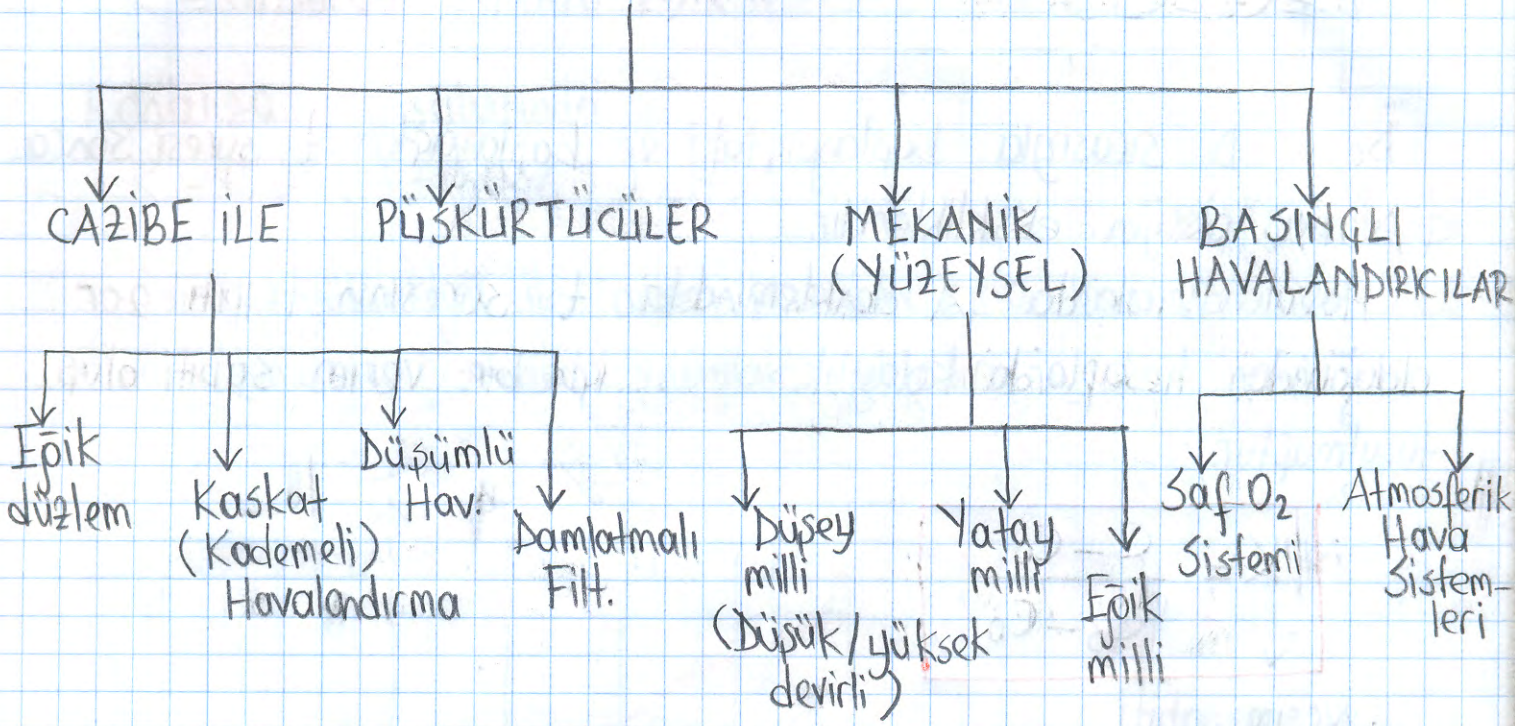 CAZİBE İLE
PÜSKÜRTÜCÜLER
MEKANİK
(YÜZEYSEL)
BASINÇLI
HAVALANDIRICILAR
Eğik
düzlem
Kaskat
(Kademeli)
Havalandırma
Düşümlü
Hav.
Damlatmalı
Filt.
Düşey
milli
(Düşük/yüksek
devirli)
Yatay
milli
Eğik
milli
Saf O₂
Sistemi
Atmosferik
Hava
Sistem-
leri